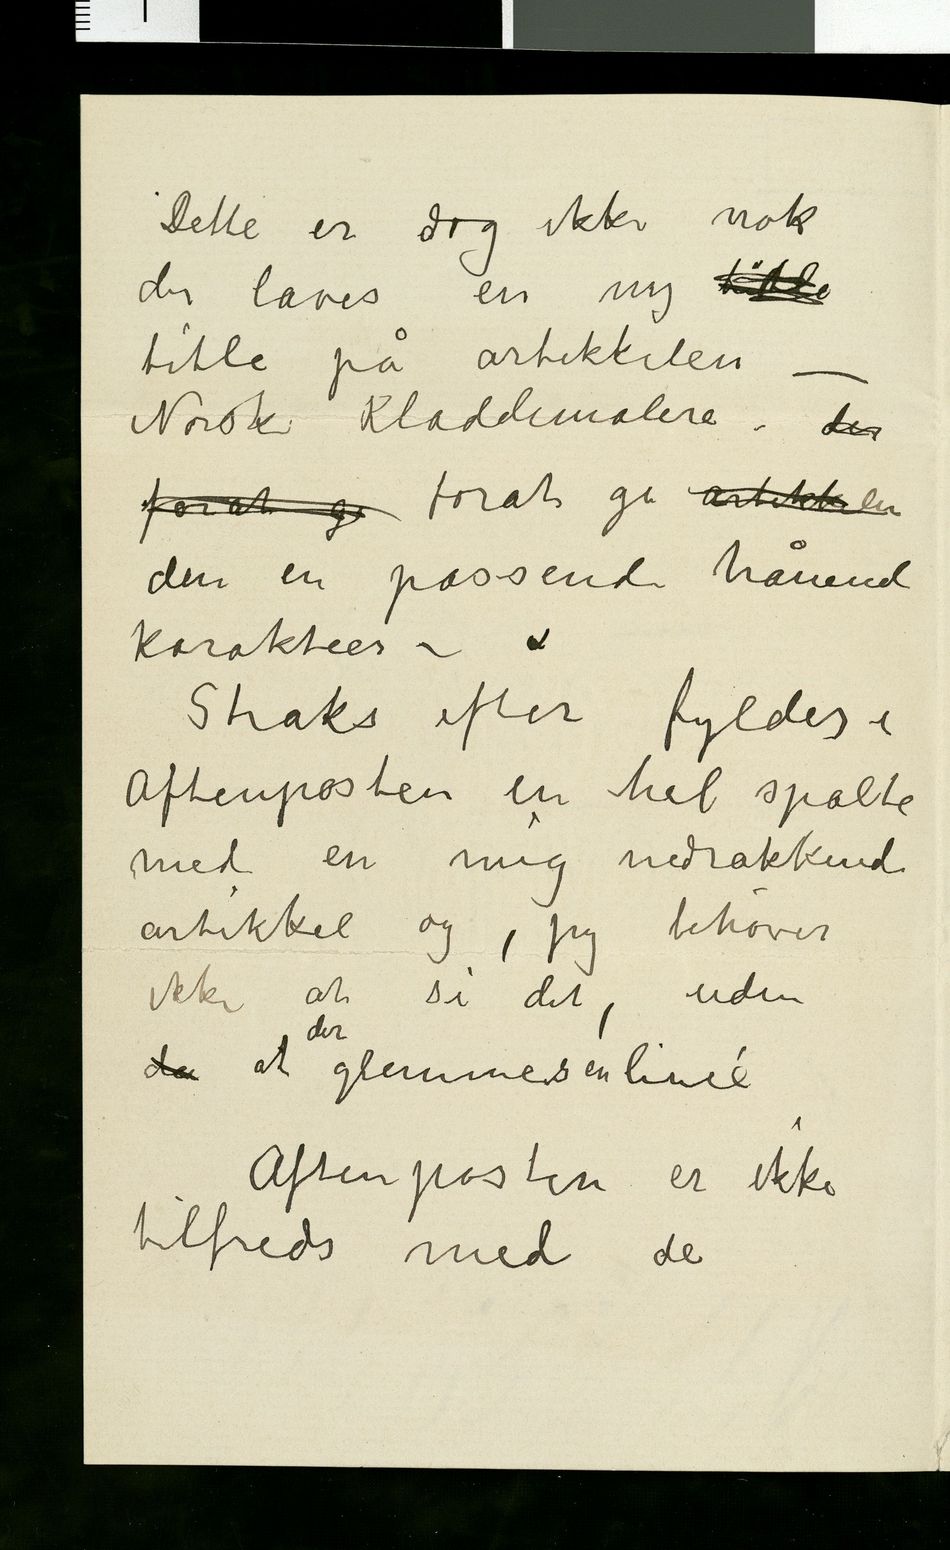 Dette er dog ikke nok
der laves en ny title
title på artikkelen —
Norsk Kladdemalere. der
forat gi forat gi artikkelen
den en passende hånend
karakteer –
Straks efter fyldes i
Aftenposten en hel spalte
med en mig nedrakkend
artikkel og, jeg behøver
ikke at si det, uden
da at der glemmes en linie
Aftenposten er ikke
tilfreds med de